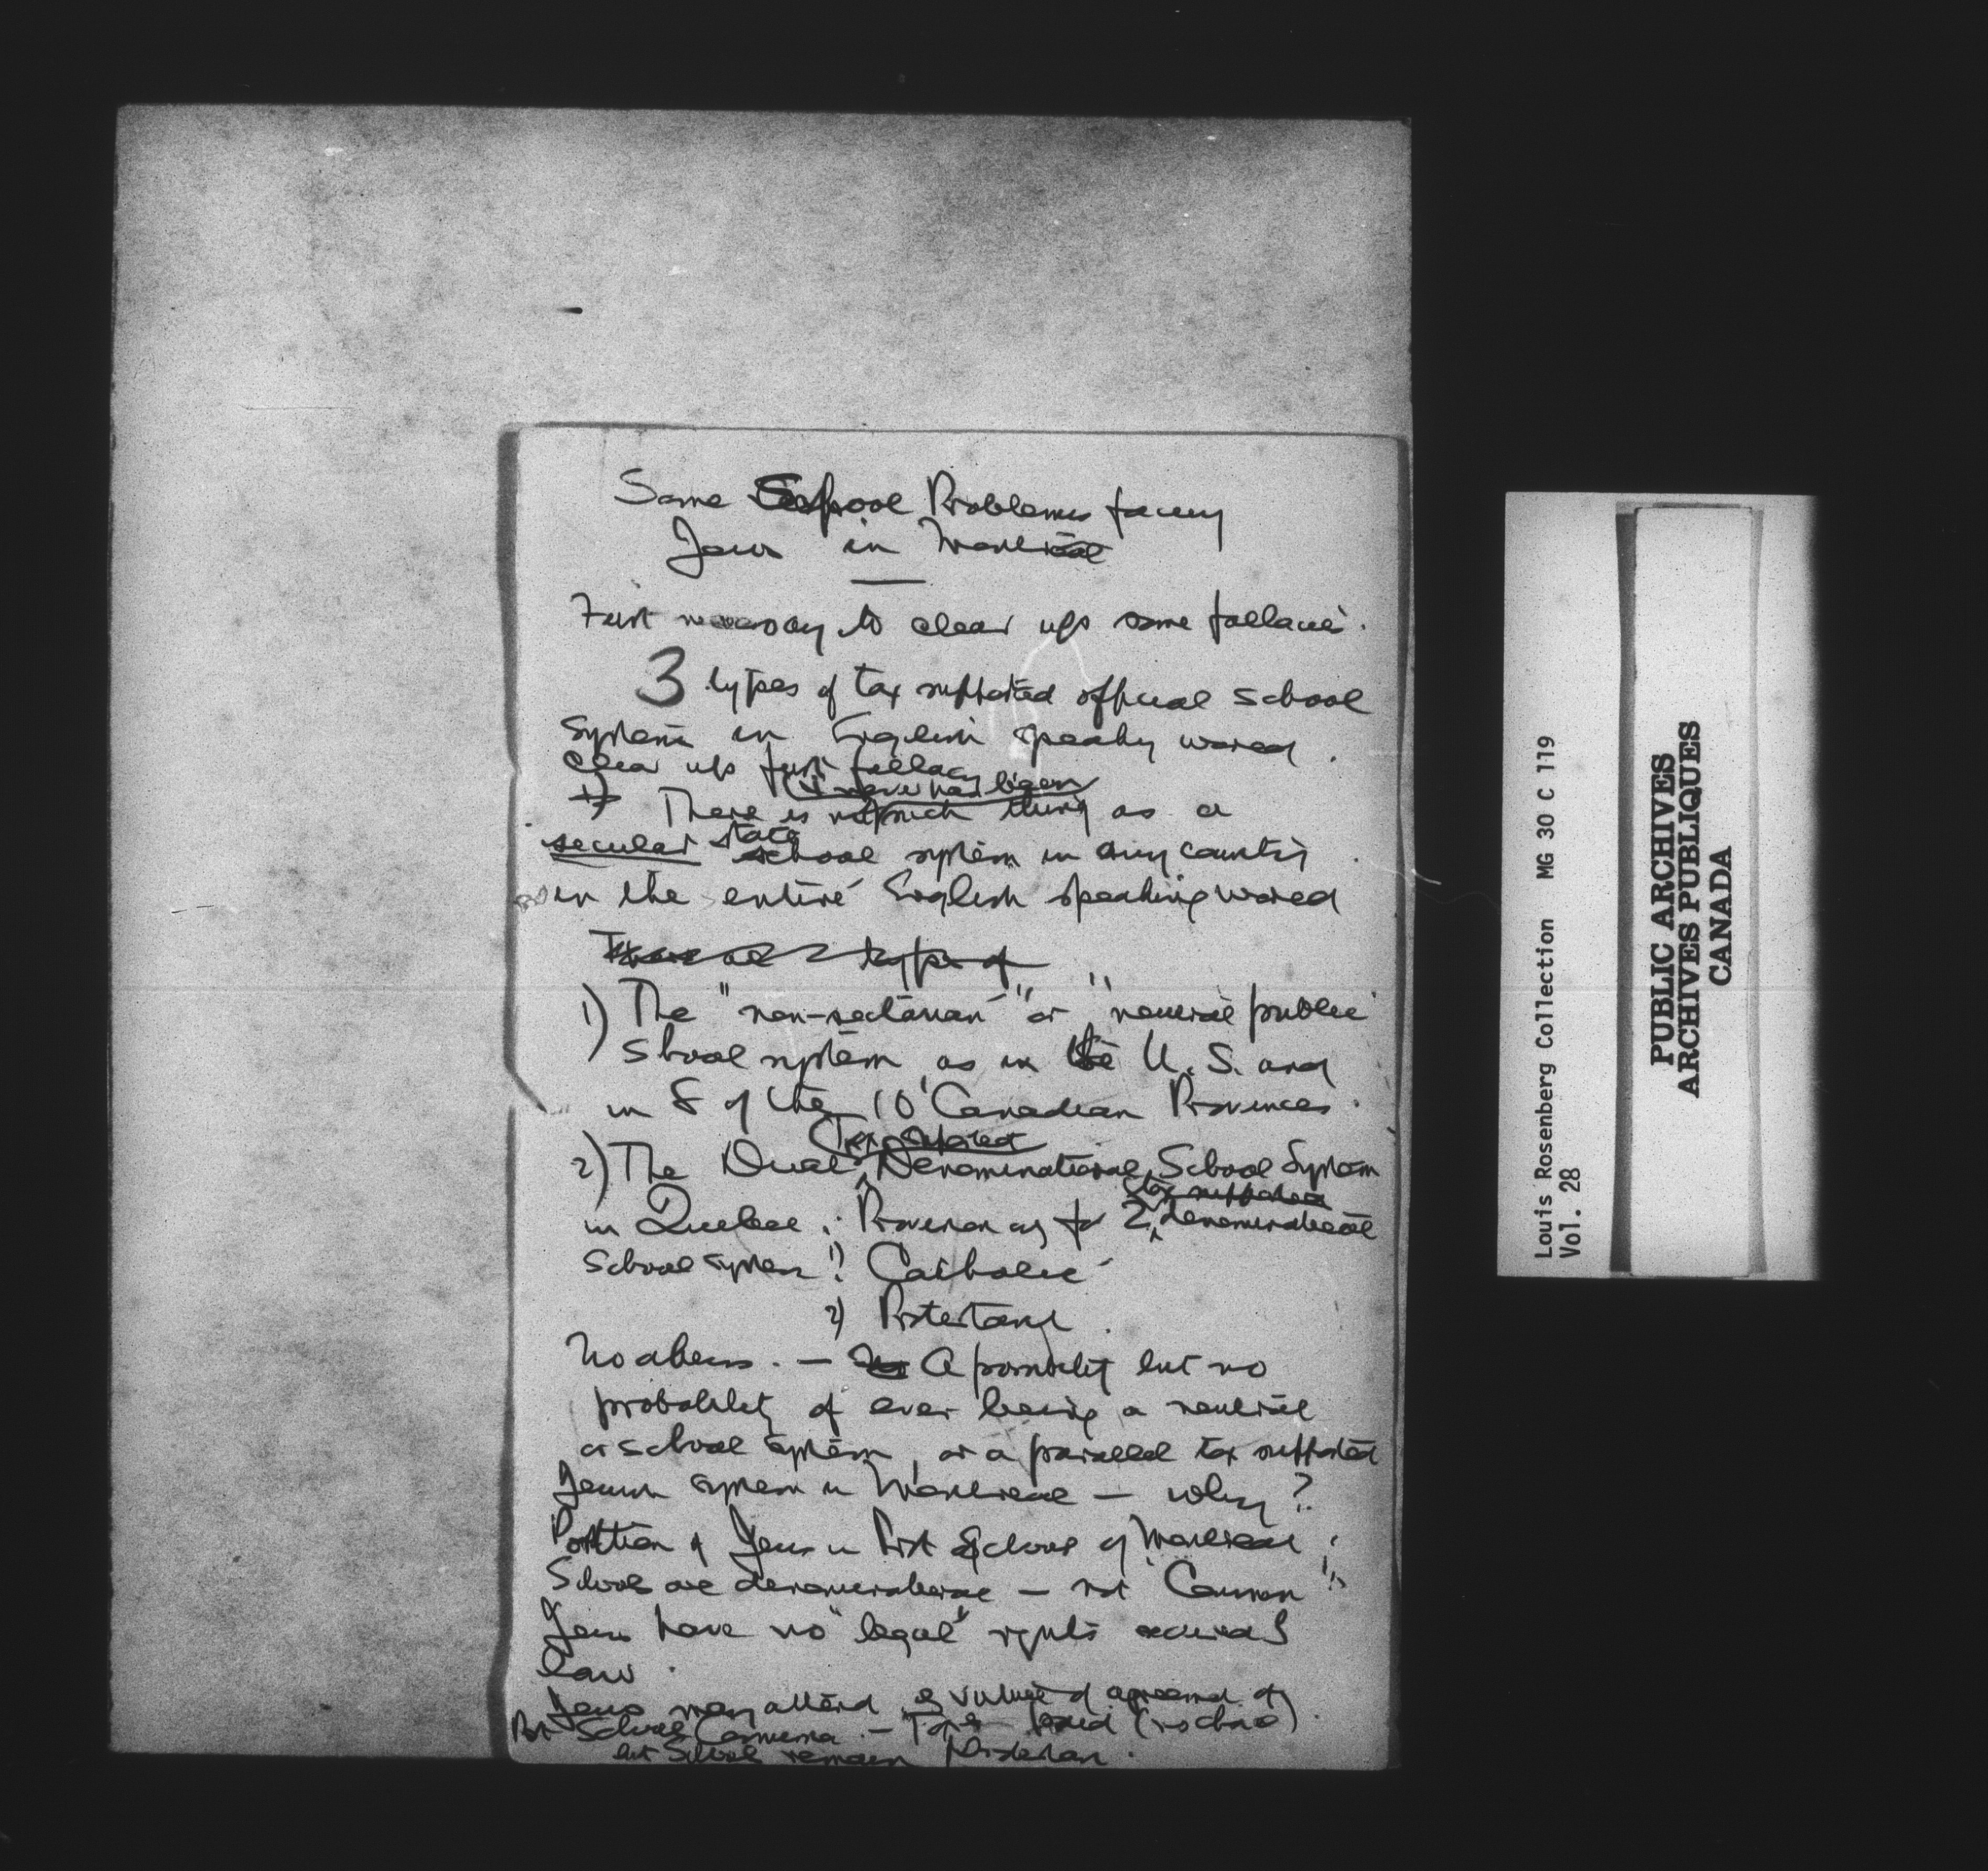 Some School Problems facing
Jews in Montreal
First necessary to clear up some fallacies.
3 types of tax supported official school
Systems in English speaking world.
Clear up first fallacy
There is no such thing as a
secular state school system in any country
in the entire English speaking world
types of
1) The "non-sectarian" or "neutral public
School system as in the U.S. and
in 8 of the 10 Canadian Provinces.
Tax Supported
2) The Dual Denominational School System
tax supported
in Quebec. Provision only for 2 denominational
School Systems 1) Catholic
2) Protestant.
No others. — A possibility but no
probability of ever being a neutral
school system, or a parallel tax supported
Jewish system in Montreal — why?
Position of Jews in Prot Schools of Montreal:
Schools are denominational — not "Common"
Jews have no "legal" rights
law.
Jews may attend by virtue of agreement of
Prot School Comm. — Taxes paid (no choice).
but Schools remain Protestant.
Louis Rosenberg Collection MG 30 C 119
Vol. 28
PUBLIC ARCHIVES
ARCHIVES PUBLIQUES
CANADA